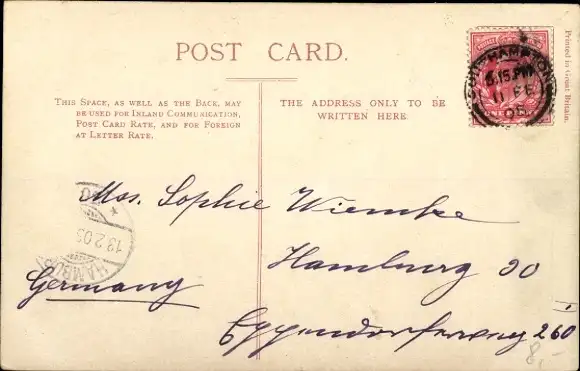 POST CARD.
Printed in Great Britain.
THIS SPACE, AS WELL AS THE BACK, MAY
BE USED FOR INLAND COMMUNICATION,
POST CARD RATE, AND FOR FOREIGN
AT LETTER RATE.
THE ADDRESS ONLY TO BE
WRITTEN HERE.
SOUTHAMPTON
6.15 PM
11 FE
HAMBURG
13.2.05
Mrs. Sophie Wiemke
Hamburg 20
Germany
Eppendorferweg 260
8,-